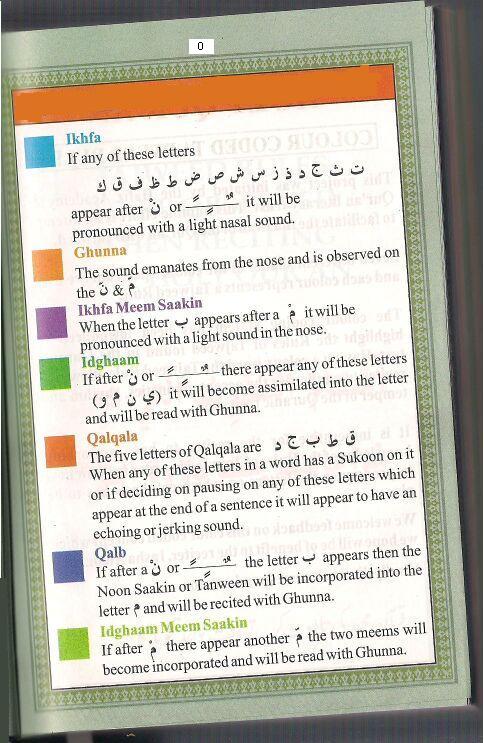 0
Ikhfa
If any of these letters
ت ث ج د ذ ز س ش ص ض ط ظ ف ق ك
appear after نْ or ـًـٍـٌ it will be
pronounced with a light nasal sound.
Ghunna
The sound emanates from the nose and is observed on
the نّ & مّ
Ikhfa Meem Saakin
When the letter ب appears after a مْ it will be
pronounced with a light sound in the nose.
Idghaam
If after نْ or ـًـٍـٌ there appear any of these letters
(ي ن م و) it will become assimilated into the letter
and will be read with Ghunna.
Qalqala
The five letters of Qalqala are ق ط ب ج د
When any of these letters in a word has a Sukoon on it
or if deciding on pausing on any of these letters which
appear at the end of a sentence it will appear to have an
echoing or jerking sound.
Qalb
If after a نْ or ـًـٍـٌ the letter ب appears then the
Noon Saakin or Tanween will be incorporated into the
letter م and will be recited with Ghunna.
Idghaam Meem Saakin
If after مْ there appear another مّ the two meems will
become incorporated and will be read with Ghunna.